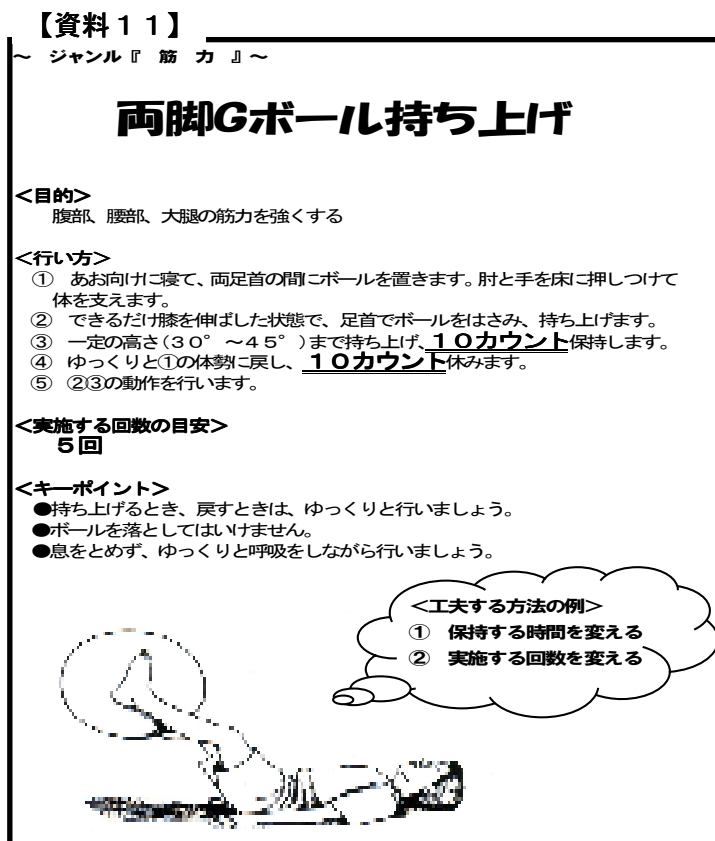 【資料１１】
～　ジャンル『　筋　力　』～
両脚Gボール持ち上げ
＜目的＞
腹部、腰部、大腿の筋力を強くする
＜行い方＞
①　あお向けに寝て、両足首の間にボールを置きます。肘と手を床に押しつけて
体を支えます。
②　できるだけ膝を伸ばした状態で、足首でボールをはさみ、持ち上げます。
③　一定の高さ（３０°～４５°）まで持ち上げ、１０カウント保持します。
④　ゆっくりと①の体勢に戻し、１０カウント休みます。
⑤　②③の動作を行います。
＜実施する回数の目安＞
５回
＜キーポイント＞
●持ち上げるとき、戻すときは、ゆっくりと行いましょう。
●ボールを落としてはいけません。
●息をとめず、ゆっくりと呼吸をしながら行いましょう。
＜工夫する方法の例＞
①　保持する時間を変える
②　実施する回数を変える